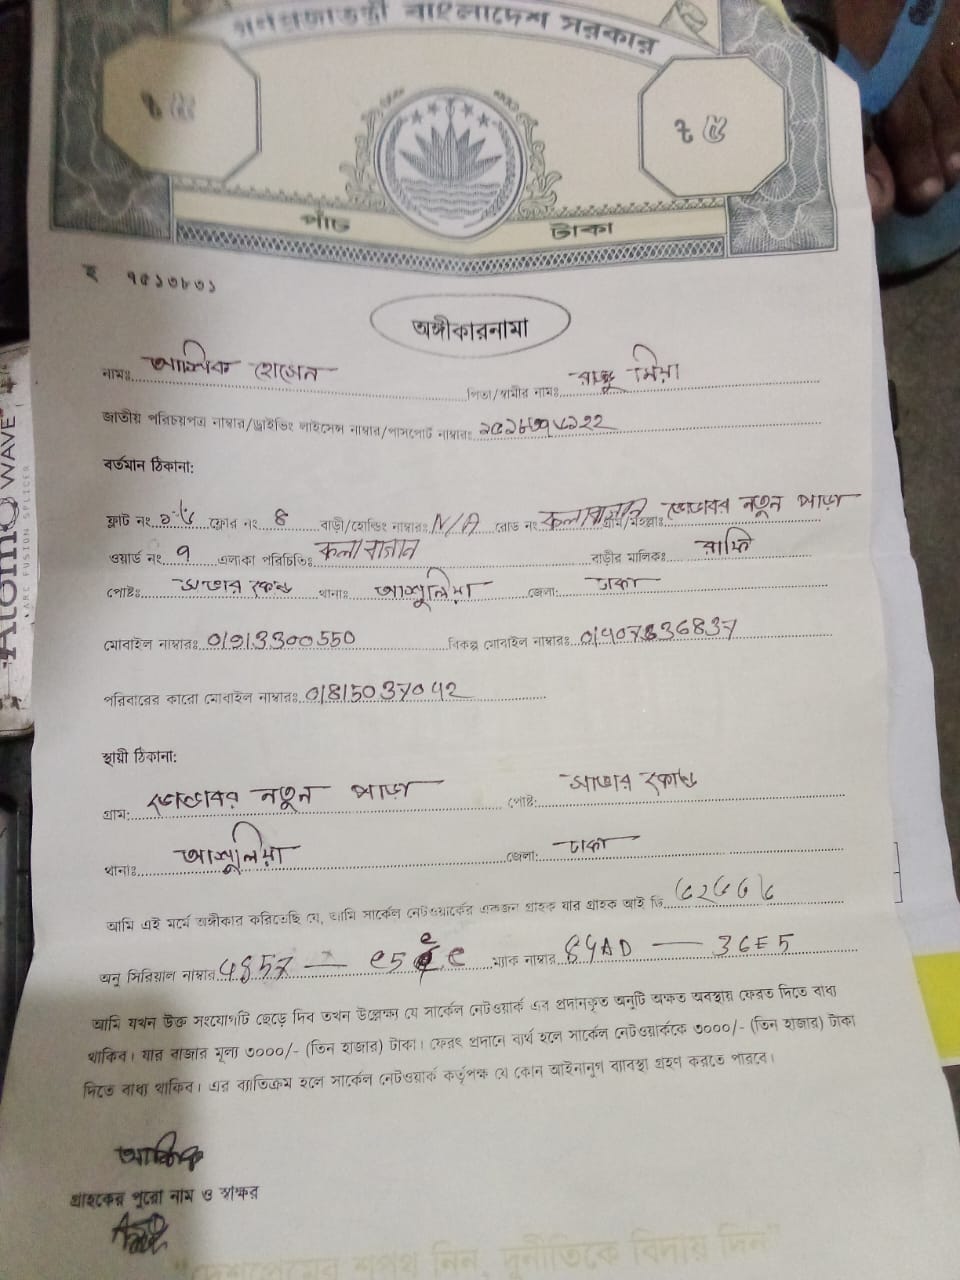 গণপ্রজাতন্ত্রী বাংলাদেশ সরকার
৳ ৫ ৳ ৫
পাঁচ টাকা
অঙ্গীকারনামা
নামঃ আশিক হোসেন পিতা/স্বামীর নামঃ রাজু মিয়া
জাতীয় পরিচয়পত্র নাম্বার/ড্রাইভিং লাইসেন্স নাম্বার/পাসপোর্ট নাম্বারঃ
বর্তমান ঠিকানা:
ফ্লাট নং. ফ্লোর নং. ৪ বাড়ী/হোল্ডিং নাম্বারঃ N/A রোড নং. কলাবাগান গ্রাম/মহল্লাঃ ভাদাবর নতুন পাড়া
ওয়ার্ড নং. ৭ এলাকা পরিচিতিঃ কলাবাগান বাড়ীর মালিকঃ রাফি
পোষ্টঃ থানাঃ আশুলিয়া জেলা: ঢাকা
মোবাইল নাম্বারঃ 01913300550 বিকল্প মোবাইল নাম্বারঃ
পরিবারের কারো মোবাইল নাম্বারঃ 01815037042
স্থায়ী ঠিকানা:
গ্রাম: নতুন পাড়া পোষ্ট: সাভার
থানাঃ আশুলিয়া জেলা: ঢাকা
আমি এই মর্মে অঙ্গীকার করিতেছি যে, আমি সার্কেল নেটওয়ার্কের একজন গ্রাহক যার গ্রাহক আই ডি
অনু সিরিয়াল নাম্বার ম্যাক নাম্বার 84AD — 36E5
আমি যখন উক্ত সংযোগটি ছেড়ে দিব তখন উল্লেক্ষ্য যে সার্কেল নেটওয়ার্ক এর প্রদানকৃত অনুটি অক্ষত অবস্থায় ফেরত দিতে বাধ্য
থাকিব। যার বাজার মূল্য ৩০০০/- (তিন হাজার) টাকা। ফেরৎ প্রদানে ব্যর্থ হলে সার্কেল নেটওয়ার্ককে ৩০০০/- (তিন হাজার) টাকা
দিতে বাধ্য থাকিব। এর ব্যতিক্রম হলে সার্কেল নেটওয়ার্ক কর্তৃপক্ষ যে কোন আইনানুগ ব্যাবস্থা গ্রহণ করতে পারবে।
আশিক
গ্রাহকের পুরো নাম ও স্বাক্ষর
"দেশপ্রেমের শপথ নিন, দুর্নীতিকে বিদায় দিন"
AtomoWAVE
ARC FUSION SPLICER